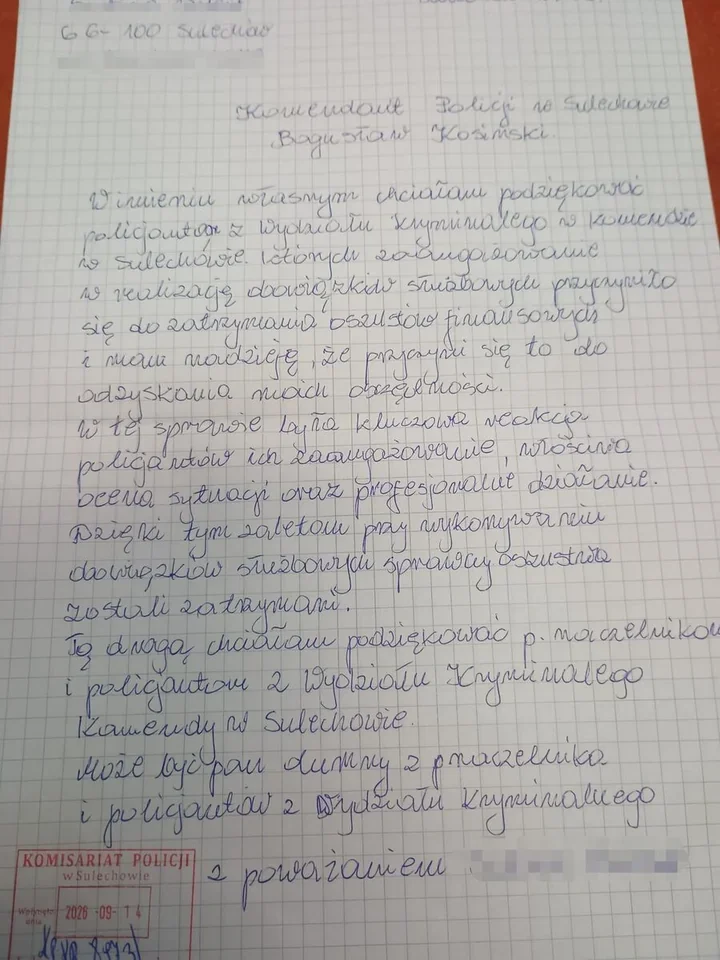 66-100 Sulechów
Komendant Policji w Sulechowie
Bogusław Kosimski.
W imieniu własnym chciałam podziękować
policjantom z Wydziału Kryminalnego w komendzie
w Sulechowie. których zaangażowanie
w realizację obowiązków służbowych przyczyniło
się do zatrzymania oszustów finansowych
i mam nadzieję, że przyczyni się to do
odzyskania moich oszczędności.
W tej sprawie była kluczowa reakcja
policjantów ich zaangażowanie, właściwa
ocena sytuacji oraz profesjonalne działanie.
Dzięki tym zaletom przy wykonywaniu
obowiązków służbowych sprawcy oszustwa
zostali zatrzymani.
Tą drogą chciałam podziękować p. naczelnikow
i policjantom z Wydziału Kryminalnego
Komendy w Sulechowie.
Może być pan dumny z p naczelnika
i policjantów z Wydziału Kryminalnego
z poważaniem
KOMISARIAT POLICJI
w Sulechowie
Wpłynęło
dnia
2026 -09- 14